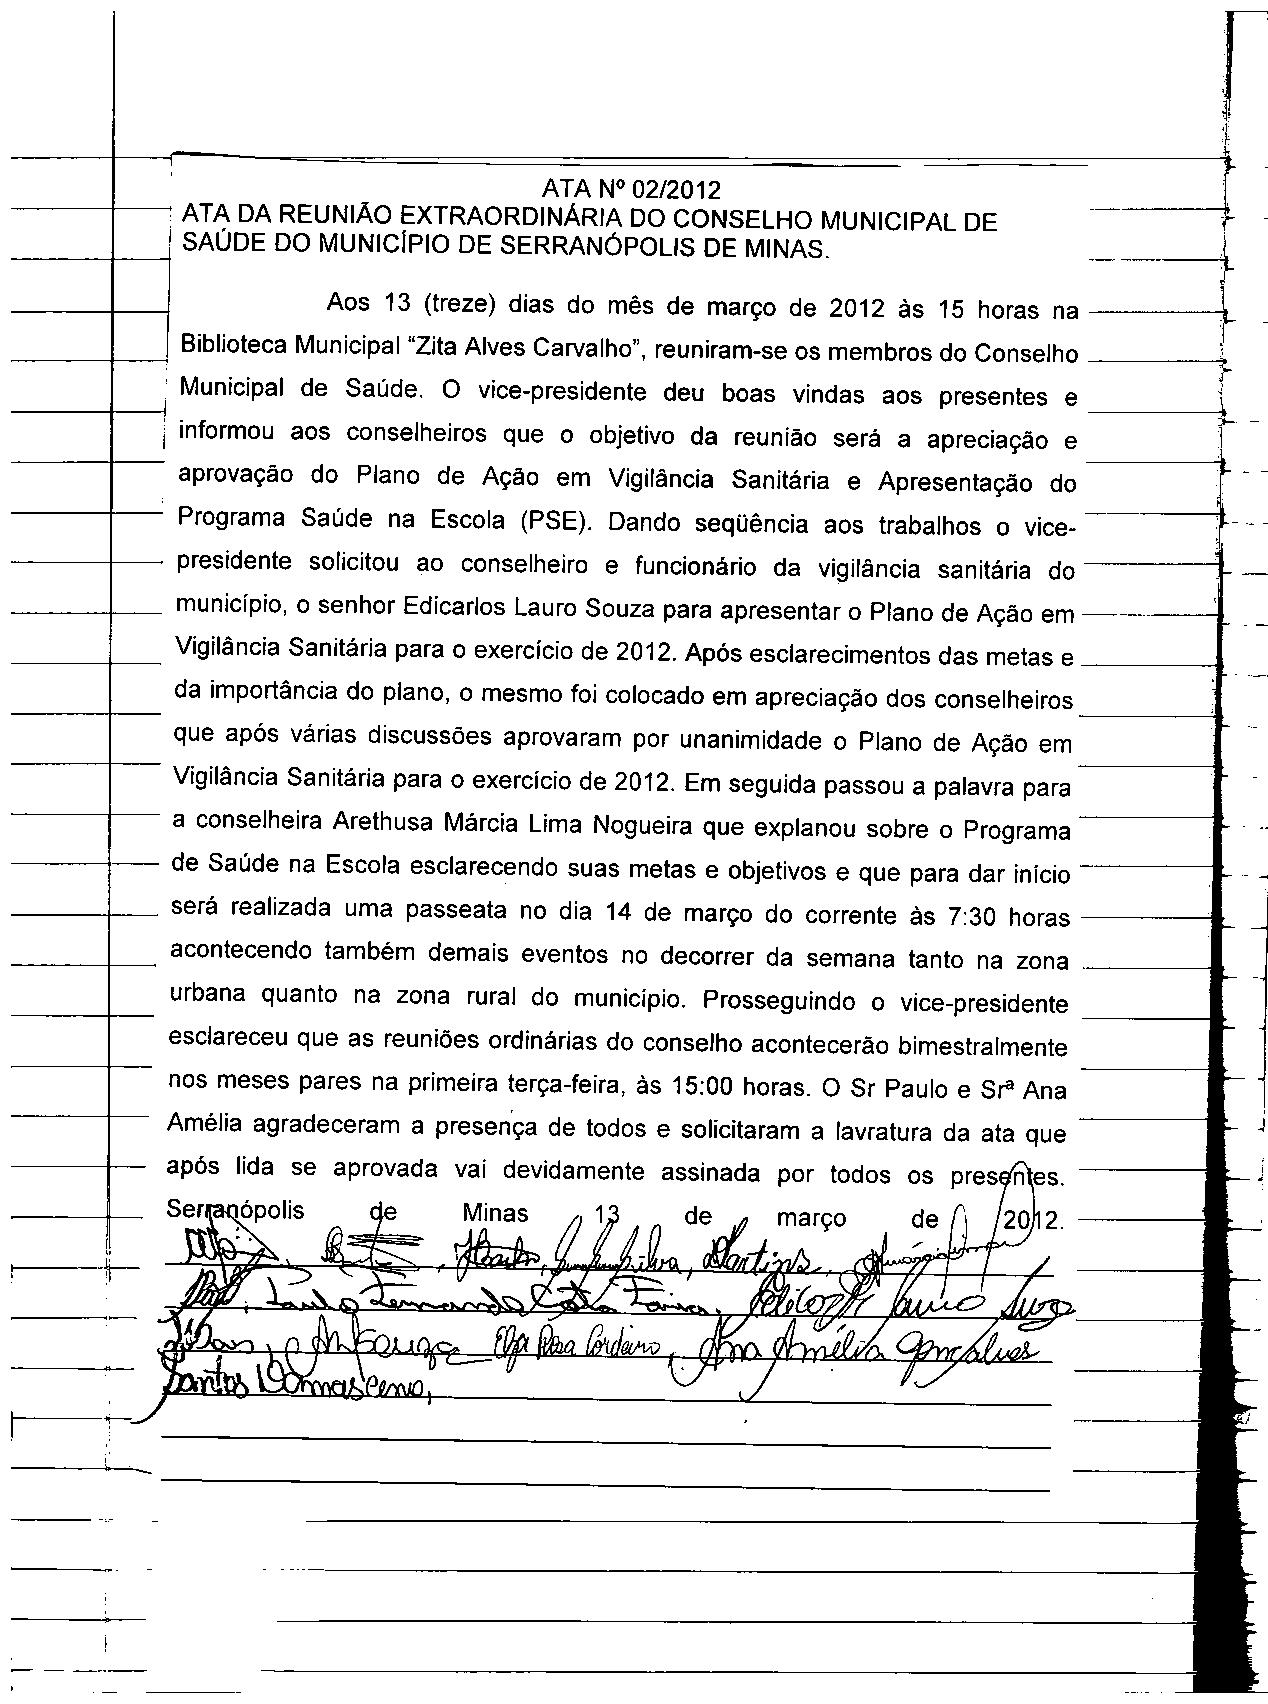 ATA Nº 02/2012
ATA DA REUNIÃO EXTRAORDINÁRIA DO CONSELHO MUNICIPAL DE
SAÚDE DO MUNICÍPIO DE SERRANÓPOLIS DE MINAS.
Aos 13 (treze) dias do mês de março de 2012 às 15 horas na
Biblioteca Municipal “Zita Alves Carvalho”, reuniram-se os membros do Conselho
Municipal de Saúde. O vice-presidente deu boas vindas aos presentes e
informou aos conselheiros que o objetivo da reunião será a apreciação e
aprovação do Plano de Ação em Vigilância Sanitária e Apresentação do
Programa Saúde na Escola (PSE). Dando seqüência aos trabalhos o vice-
presidente solicitou ao conselheiro e funcionário da vigilância sanitária do
município, o senhor Edicarlos Lauro Souza para apresentar o Plano de Ação em
Vigilância Sanitária para o exercício de 2012. Após esclarecimentos das metas e
da importância do plano, o mesmo foi colocado em apreciação dos conselheiros
que após várias discussões aprovaram por unanimidade o Plano de Ação em
Vigilância Sanitária para o exercício de 2012. Em seguida passou a palavra para
a conselheira Arethusa Márcia Lima Nogueira que explanou sobre o Programa
de Saúde na Escola esclarecendo suas metas e objetivos e que para dar início
será realizada uma passeata no dia 14 de março do corrente às 7:30 horas
acontecendo também demais eventos no decorrer da semana tanto na zona
urbana quanto na zona rural do município. Prosseguindo o vice-presidente
esclareceu que as reuniões ordinárias do conselho acontecerão bimestralmente
nos meses pares na primeira terça-feira, às 15:00 horas. O Sr Paulo e Srª Ana
Amélia agradeceram a presença de todos e solicitaram a lavratura da ata que
após lida se aprovada vai devidamente assinada por todos os presentes.
Serranópolis de Minas 13 de março de 2012.
Silva, Martins,
Paulo Fernando
Elza Rosa Cordeiro, Ana Amélia Gonçalves
Santos Damasceno,